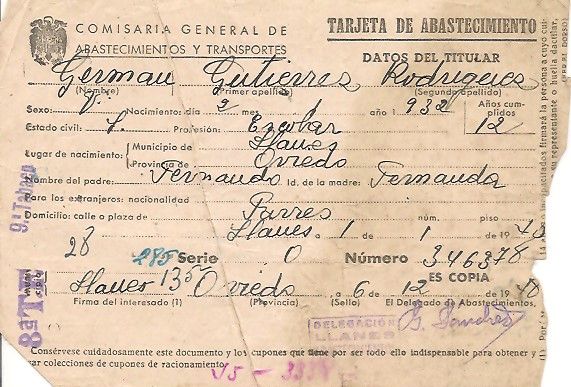 COMISARIA GENERAL DE
ABASTECIMIENTOS Y TRANSPORTES
TARJETA DE ABASTECIMIENTO
DATOS DEL TITULAR
German Gutierres Rodrigues
(Nombre) (Primer apellido) (Segundo apellido)
Sexo: V. Nacimiento: día 2 mes 1 año 932 Años cumplidos 12
Estado civil: S. Profesión: Escolar
Lugar de nacimiento: Municipio de Llanes
Provincia de Oviedo
Nombre del padre: Fernando Id. de la madre: Fernanda
Para los extranjeros: nacionalidad
Domicilio: calle o plaza de Parres núm. piso
28 Llanes a 1 de 1 de 194
285 Serie O Número 346378
ES COPIA
Llanes 135 Oviedo a 6 de 12 de 1948
Firma del interesado (1) (Provincia) (Sello) El Delegado de Abastecimientos,
DELEGACION
LLANES
Consérvese cuidadosamente este documento y los cupones que tiene por ser todo ello indispensable para obtener y
ar colecciones de cupones de racionamiento.
V5-
8ª T